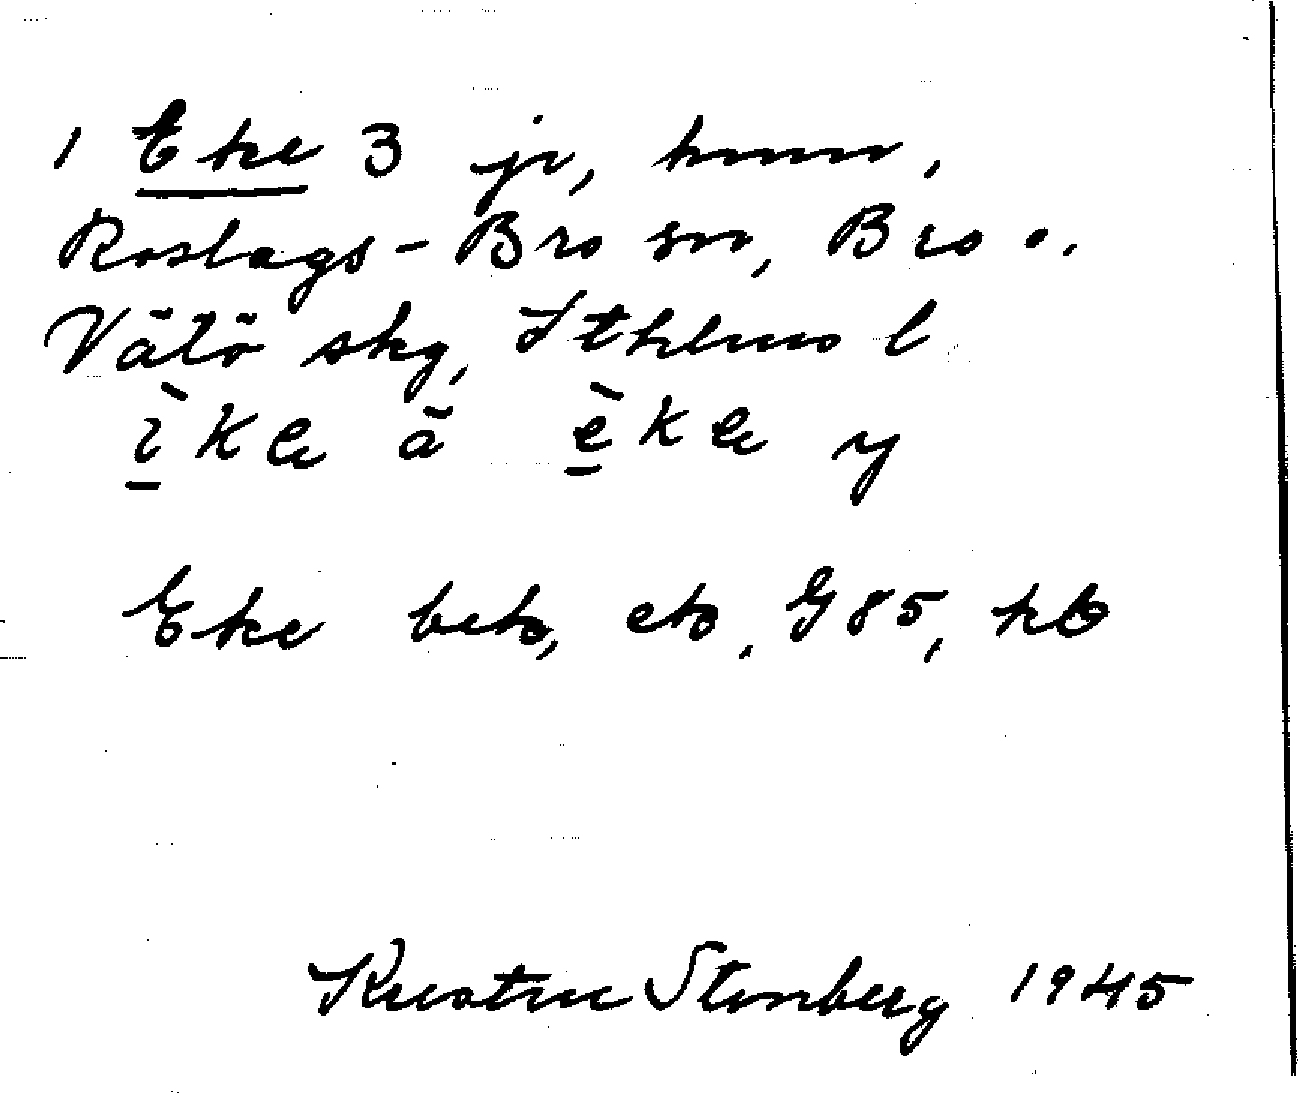 1 Eke 3 jr, hmn,
Roslags-Bro sn, Bro o.
Vätö skg, Sthlms l
ìke ä èke y
Eke beb, eb, G85, kb
Kerstin Stenberg 1945